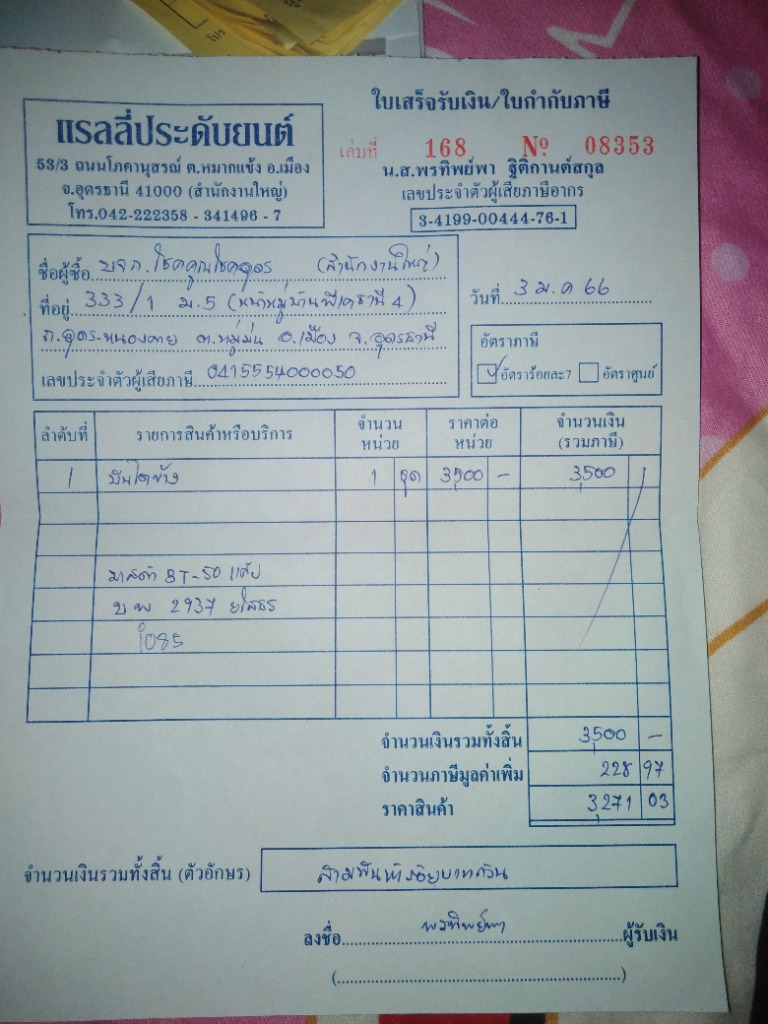 ใบเสร็จรับเงิน/ใบกำกับภาษี
แรลลี่ประดับยนต์
53/3 ถนนโภคานุสรณ์ ต.หมากแข้ง อ.เมือง
จ.อุดรธานี 41000 (สำนักงานใหญ่)
โทร.042-222358 - 341496 - 7
เล่มที่ 168 № 08353
น.ส.พรทิพย์พา ฐิติกานต์สกุล
เลขประจำตัวผู้เสียภาษีอากร
3-4199-00444-76-1
ชื่อผู้ซื้อ บจก.โชคคูณโชคอุดร (สำนักงานใหญ่)
ที่อยู่ 333/1 ม.5 (หน้าหมู่บ้านพิเศธานี 4)
ถ.อุดร-หนองคาย ต.หมู่ม่น อ.เมือง จ.อุดรธานี
เลขประจำตัวผู้เสียภาษี 0415554000050
วันที่ 3 ม.ค 66
อัตราภาษี
อัตราร้อยละ7 อัตราศูนย์
ลำดับที่ รายการสินค้าหรือบริการ จำนวนหน่วย ราคาต่อหน่วย จำนวนเงิน (รวมภาษี)
1 บันไดข้าง 1 ชุด 3,500 - 3,500
มาสด้า BT-50 แค๊ป
บพ 2937 ยโสธร
085
จำนวนเงินรวมทั้งสิ้น 3,500 -
จำนวนภาษีมูลค่าเพิ่ม 228 97
ราคาสินค้า 3,271 03
จำนวนเงินรวมทั้งสิ้น (ตัวอักษร) สามพันห้าร้อยบาทถ้วน
ลงชื่อ พรทิพย์พา ผู้รับเงิน